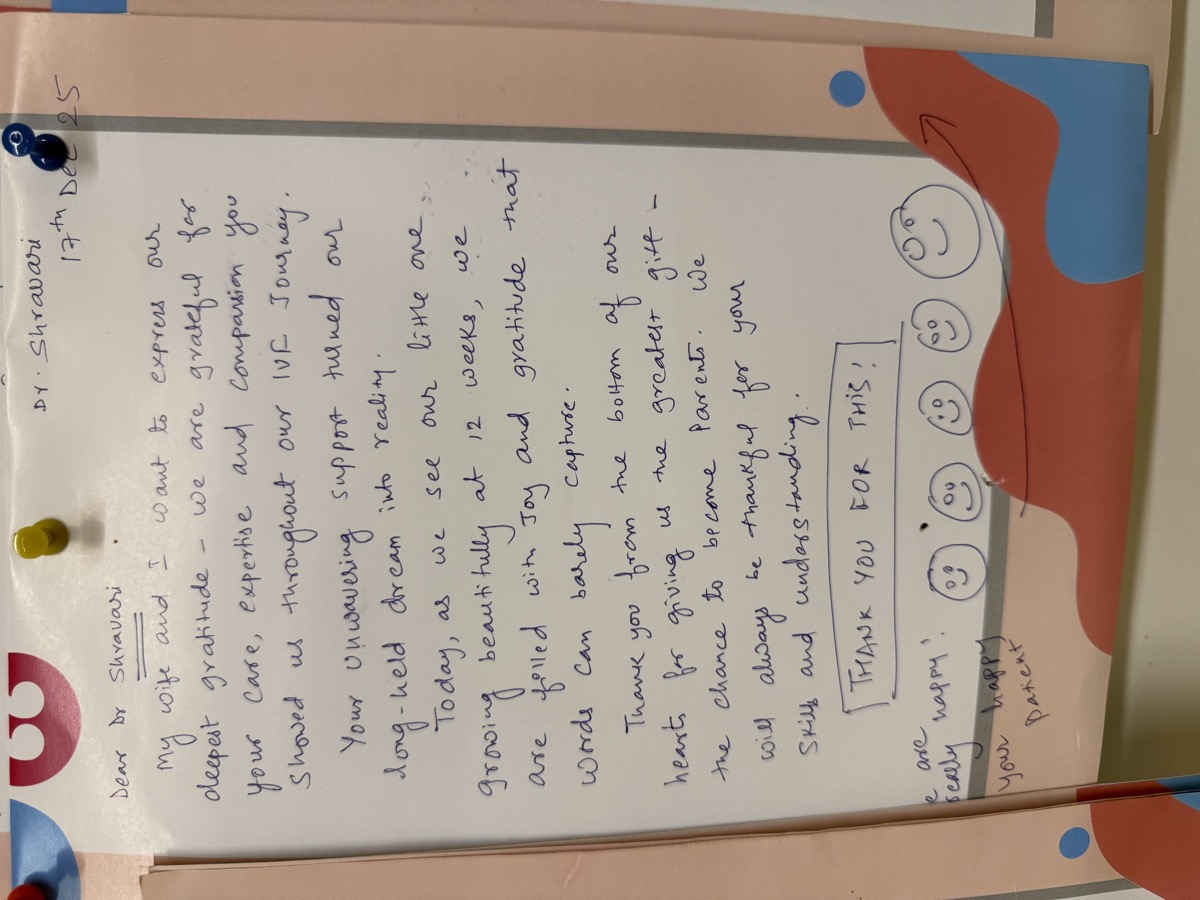 Dr. Shravari
17th Dec 25
Dear Dr Shravari
My wife and I want to express our
deepest gratitude - we are grateful for
your care, expertise and compassion you
showed us throughout our IVF Journey.
Your unwavering support turned our
long-held dream into reality.
Today, as we see our little one
growing beautifully at 12 weeks, we
are filled with Joy and gratitude that
words can barely capture.
Thank you from the bottom of our
hearts for giving us the greatest gift -
the chance to become parents. We
will always be thankful for your
skills and understanding.
THANK YOU FOR THIS!
e are
really happy!
your happy
patient